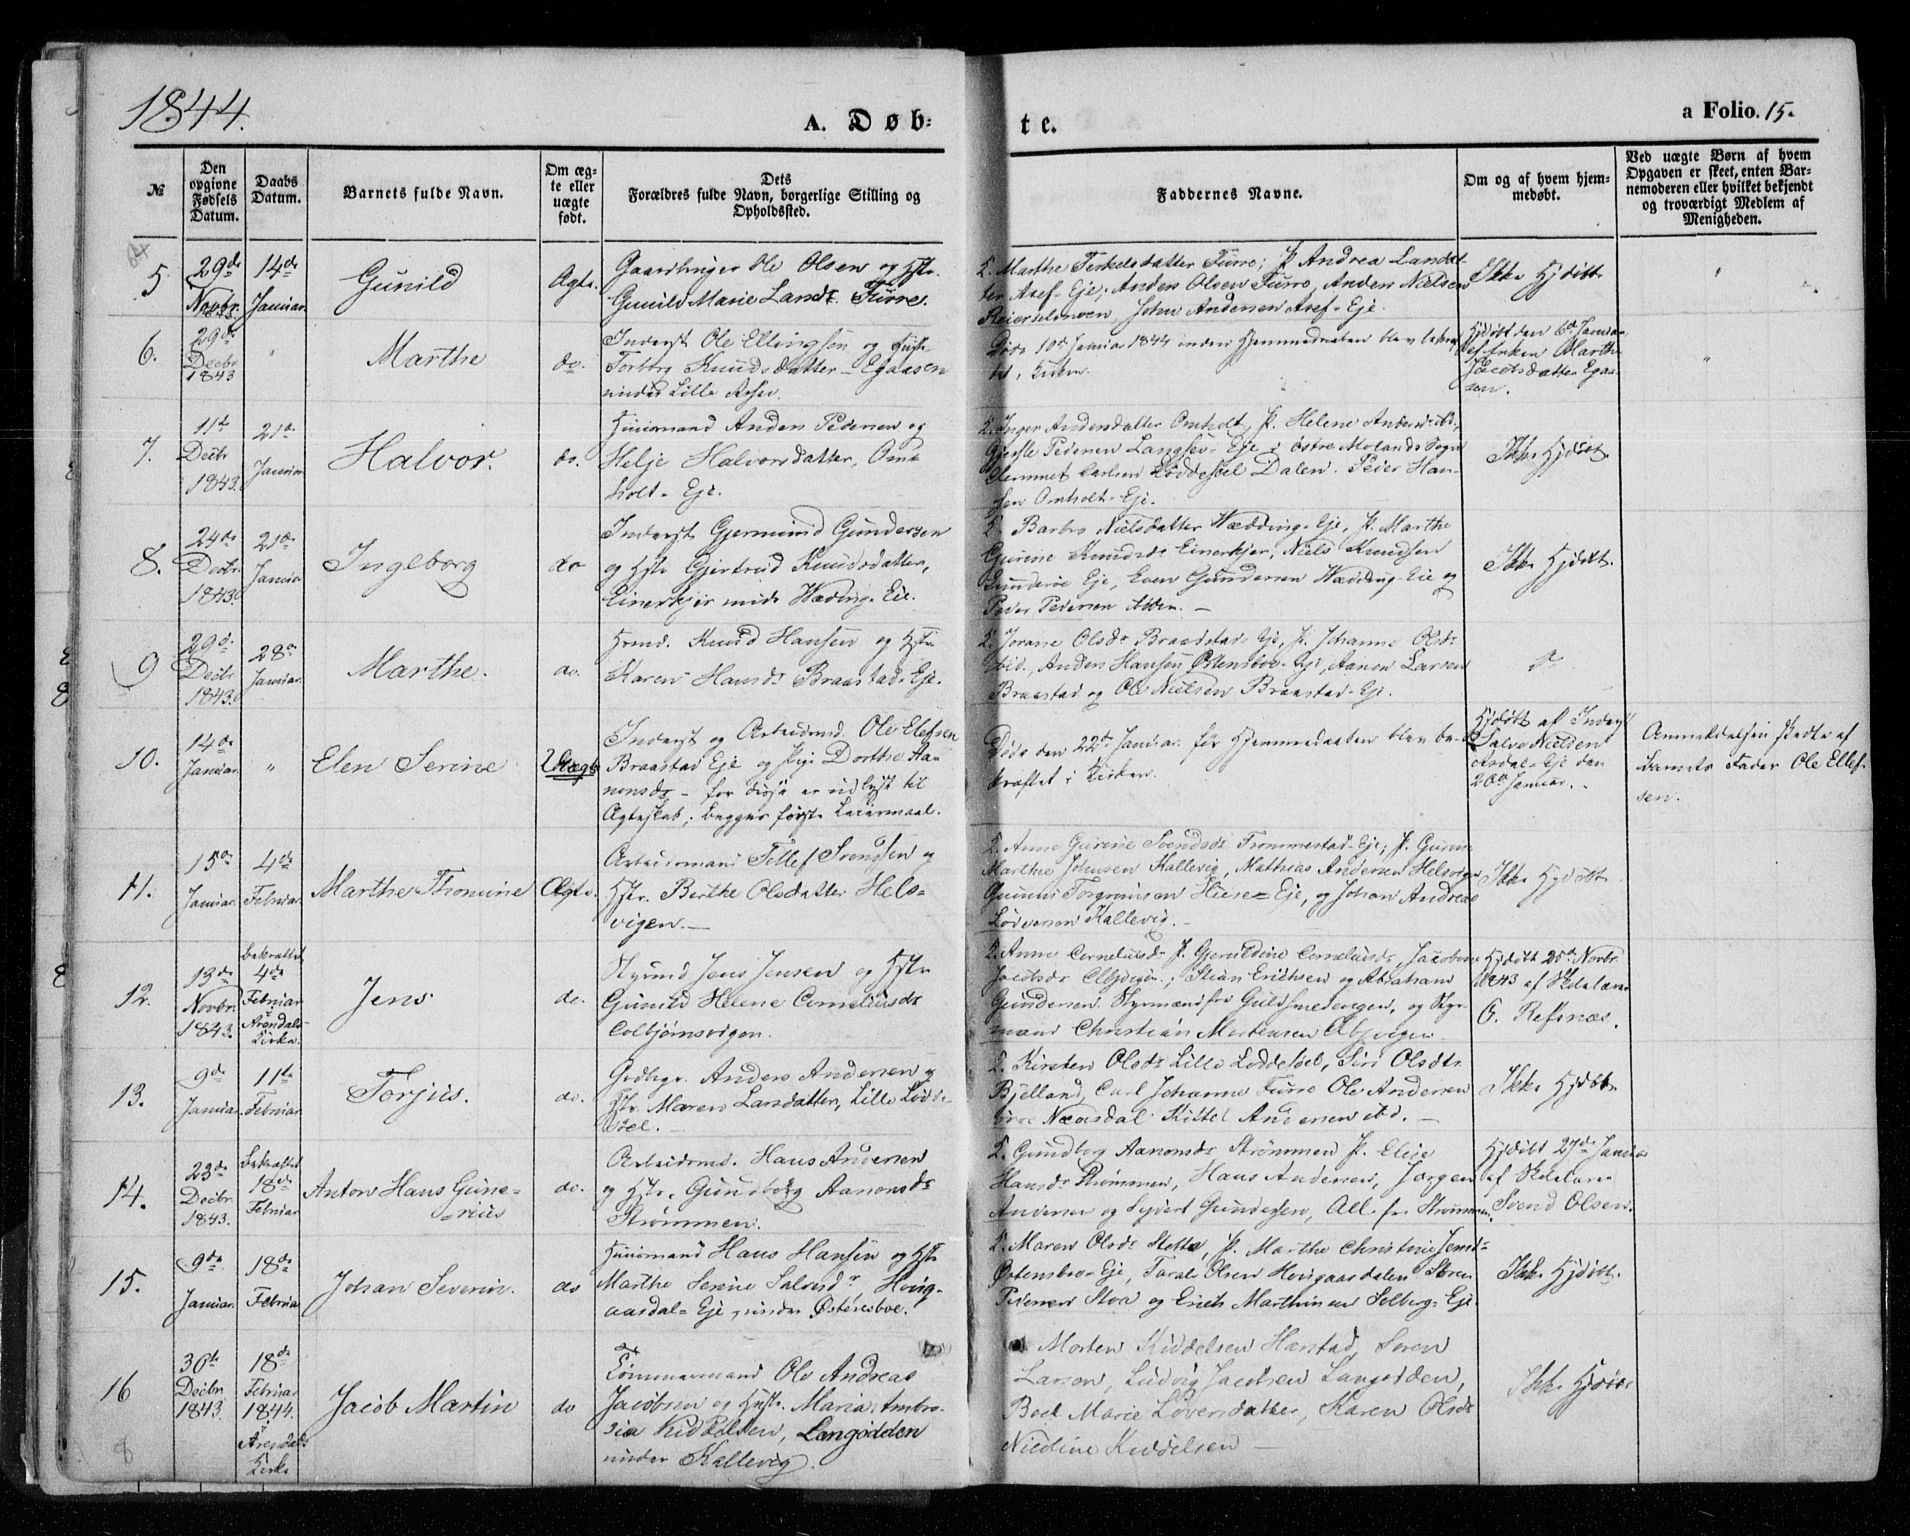 1844.
A. Døb-
te.
a Folio. 15.
№
Den opgivne Fødsels Datum.
Daabs Datum.
Barnets fulde Navn.
Om ægte eller uægte født.
Dets
Forældres fulde Navn, borgerlige Stilling og
Opholdssted.
Faddernes Navne.
Om og af hvem hjem-
medøbt.
Ved uægte Børn af hvem
Opgaven er skeet, enten Bar-
nemoderen eller hvilket bekjendt
og troværdigt Medlem af
Menigheden.
5
29de Novbr. 1843
14de Januar.
Gunild
Ægte.
Gaardbruger Ole Olsen og Hstr.
Gunild Marie Larsdr. Furre.
Marthe Terkelsdatter Furre; P. Andrea Larsdat-
ter Asef-Eje, Anders Olsen Furre, Anders Nielsen
John Andersen Asef-Eje.
Ikke Hjdøbt
"
6.
29de Decbr 1843
"
Marthe
do.
Inderst Ole Ellingsen og Hust.
Torborg Knudsdatter Egaasen
under Lille Asef.
Døde 10de Januar 1844 inden Hjemmedaaben blev bekræf-
tet i Kirken.
Hjdøbt den 6te Januar
af Enken Marthe
Jacobsdatter Egaa-
sen.
"
7.
11te Decbr 1843.
21de Januar
Halvor.
do.
Huusmand Anders Pedersen og
Helje Halvorsdatter, Om-
holt-Eje.
Inger Andersdatter Omholt, P. Helene Andersd. ibd.,
Pedersen Langsev-Eje i Østre Molands Sogn
Clemmet Carlsen Løddesøel Dalen. Peier Han-
sen Omholt-Eje.
Ikke Hjdøbt
8.
24de Decbr. 1843.
21de Januar
Ingeborg
do
Inderst Gjermund Gundersen
og Hstr Gjertrud Knudsdatter,
Einerkjer under Wædding-Eie.
Barbro Nielsdatter Wædding-Eje, P. Marthe
Gurine Knudsdr Einerkjer, Niels Knudsen
Eje, Even Gundersen Wædding-Eie og
Peder Pedersen ibden.
Ikke Hjdøbt.
9
29d. Decbr 1843.
28de Januar.
Marthe.
do.
Hmd. Knud Hansen og Hstr
Karen Hansdr Braastad-Eje.
Jorane Olsdr Braastad-Eje, P. Johanne Olsdr
ibid., Anders Hansen Østensboe-Eje, Aanon Larsen
Braastad og Ole Nielsen Braastad-Eje.
10.
14de Januar.
"
Elen Serine
Uægte
Inderst og Arbeidsmd. Ole Elefsen
Braastad Eje og Pige Dorthe Aa-
nonsdr - for disse er udlyst til
Ægteskab; begges første Leiermaal.
Døde den 22de Januar før Hjemmedaaben blev be-
kræftet i Kirken.
Hjdøbt af Inderst
Salve Nielsen
Asdal-Eje den
20de Januar.
Anmeldelsen skedte af
Barnets Fader Ole Ellef-
sen.
11.
15de Januar.
4de Februar.
Marthe Thomine
Ægte.
Arbeidsmand Tellef Svendsen og
Hstr. Birthe Olsdatter Hels-
vigen.
Anne Gurine Svendsdr Trommestad-Eje; P. Guren
Marthe Johnsen Kallevig, Matthias Andersen Helsvigen
Gunni Torgrimsen Heire-Eje, og Johan Andreas
Løversen Kallevig.
Ikke Hjdøbt
12.
13de Novbr. 1843.
bekræftet 4de Februar i Arendals Kirke.
Jens
do.
Styrmd Jens Jensen og Hstr
Gunild Helene Corneliusdr
Colbjørnsvigen.
Anne Corneliusdr P. Gjeruldine Corneliusdr, Jacobine
Jacobsdr ; Stian Erichsen og Abraham
Gundersen Styrmænd fra Guldsmedengen, og Styr-
mand Christian Mortensen
Hjdøbt 25de Novbr
1843 af Skolelærer
O. Refsnæs.
13.
9de Januar.
11te Februar.
Torjus.
do.
Gbrgr. Anders Andersen og
Hstr. Maren Larsdatter, Lille Lødde-
søel.
Kirsten Olsdr Lille Løddesøel, Siri Olsdtr
Bjelland, Carl Johannes Furre Ole Andersen
Næersdal Kittel Andersen ibd.
Ikke Hjdøbt
14.
23de Decbr. 1843.
bekræftet 18de Februar
Anton Hans Gune-
-rius
do.
Arbeidsmd. Hans Andersen
og Hstr. Gundborg Aanonsdr
Strømmen.
Gundborg Aanonsdr Strømmen P. Elise
Hansdr Strømmen, Hans Andersen, Jørgen
Andersen og Syvert Gundersen, Alle fra Strømmen.
Hjdøbt 27de Januar
af Skolelærer
Svend Olsen.
15.
9de Januar.
18de Februar
Johan Severin.
do
Huusmand Hans Hansen og Hstr
Marthe Serine Salvesdr Houg-
aasdal-Eje, under Østensboe.
Maren Olsdr Stette, P. Marthe Christine Jensd-
Østensboe-Eje, Taral Olsen Hougaasdalen Søren
Pedersen Stoa og Erich Marthinsen Solberg-Eje.
Ikke Hjdøbt.
16
30te Decbr 1843.
18de Februar 1844. i Arendals Kirke
Jacob Martin
do
Tømmermand Ole Andreas
Jacobsen og Hustr. Maria Ambro-
sia Kiddelsen, Langødden
under Kallevig.
Morten Kiddelsen Harstad, Søren
Larsen, Ludvig Jacobsen Langødden,
Boel Marie Løversdatter, Karen Olsdr
Nicoline Kiddelsen
Ikke Hjdøbt
8